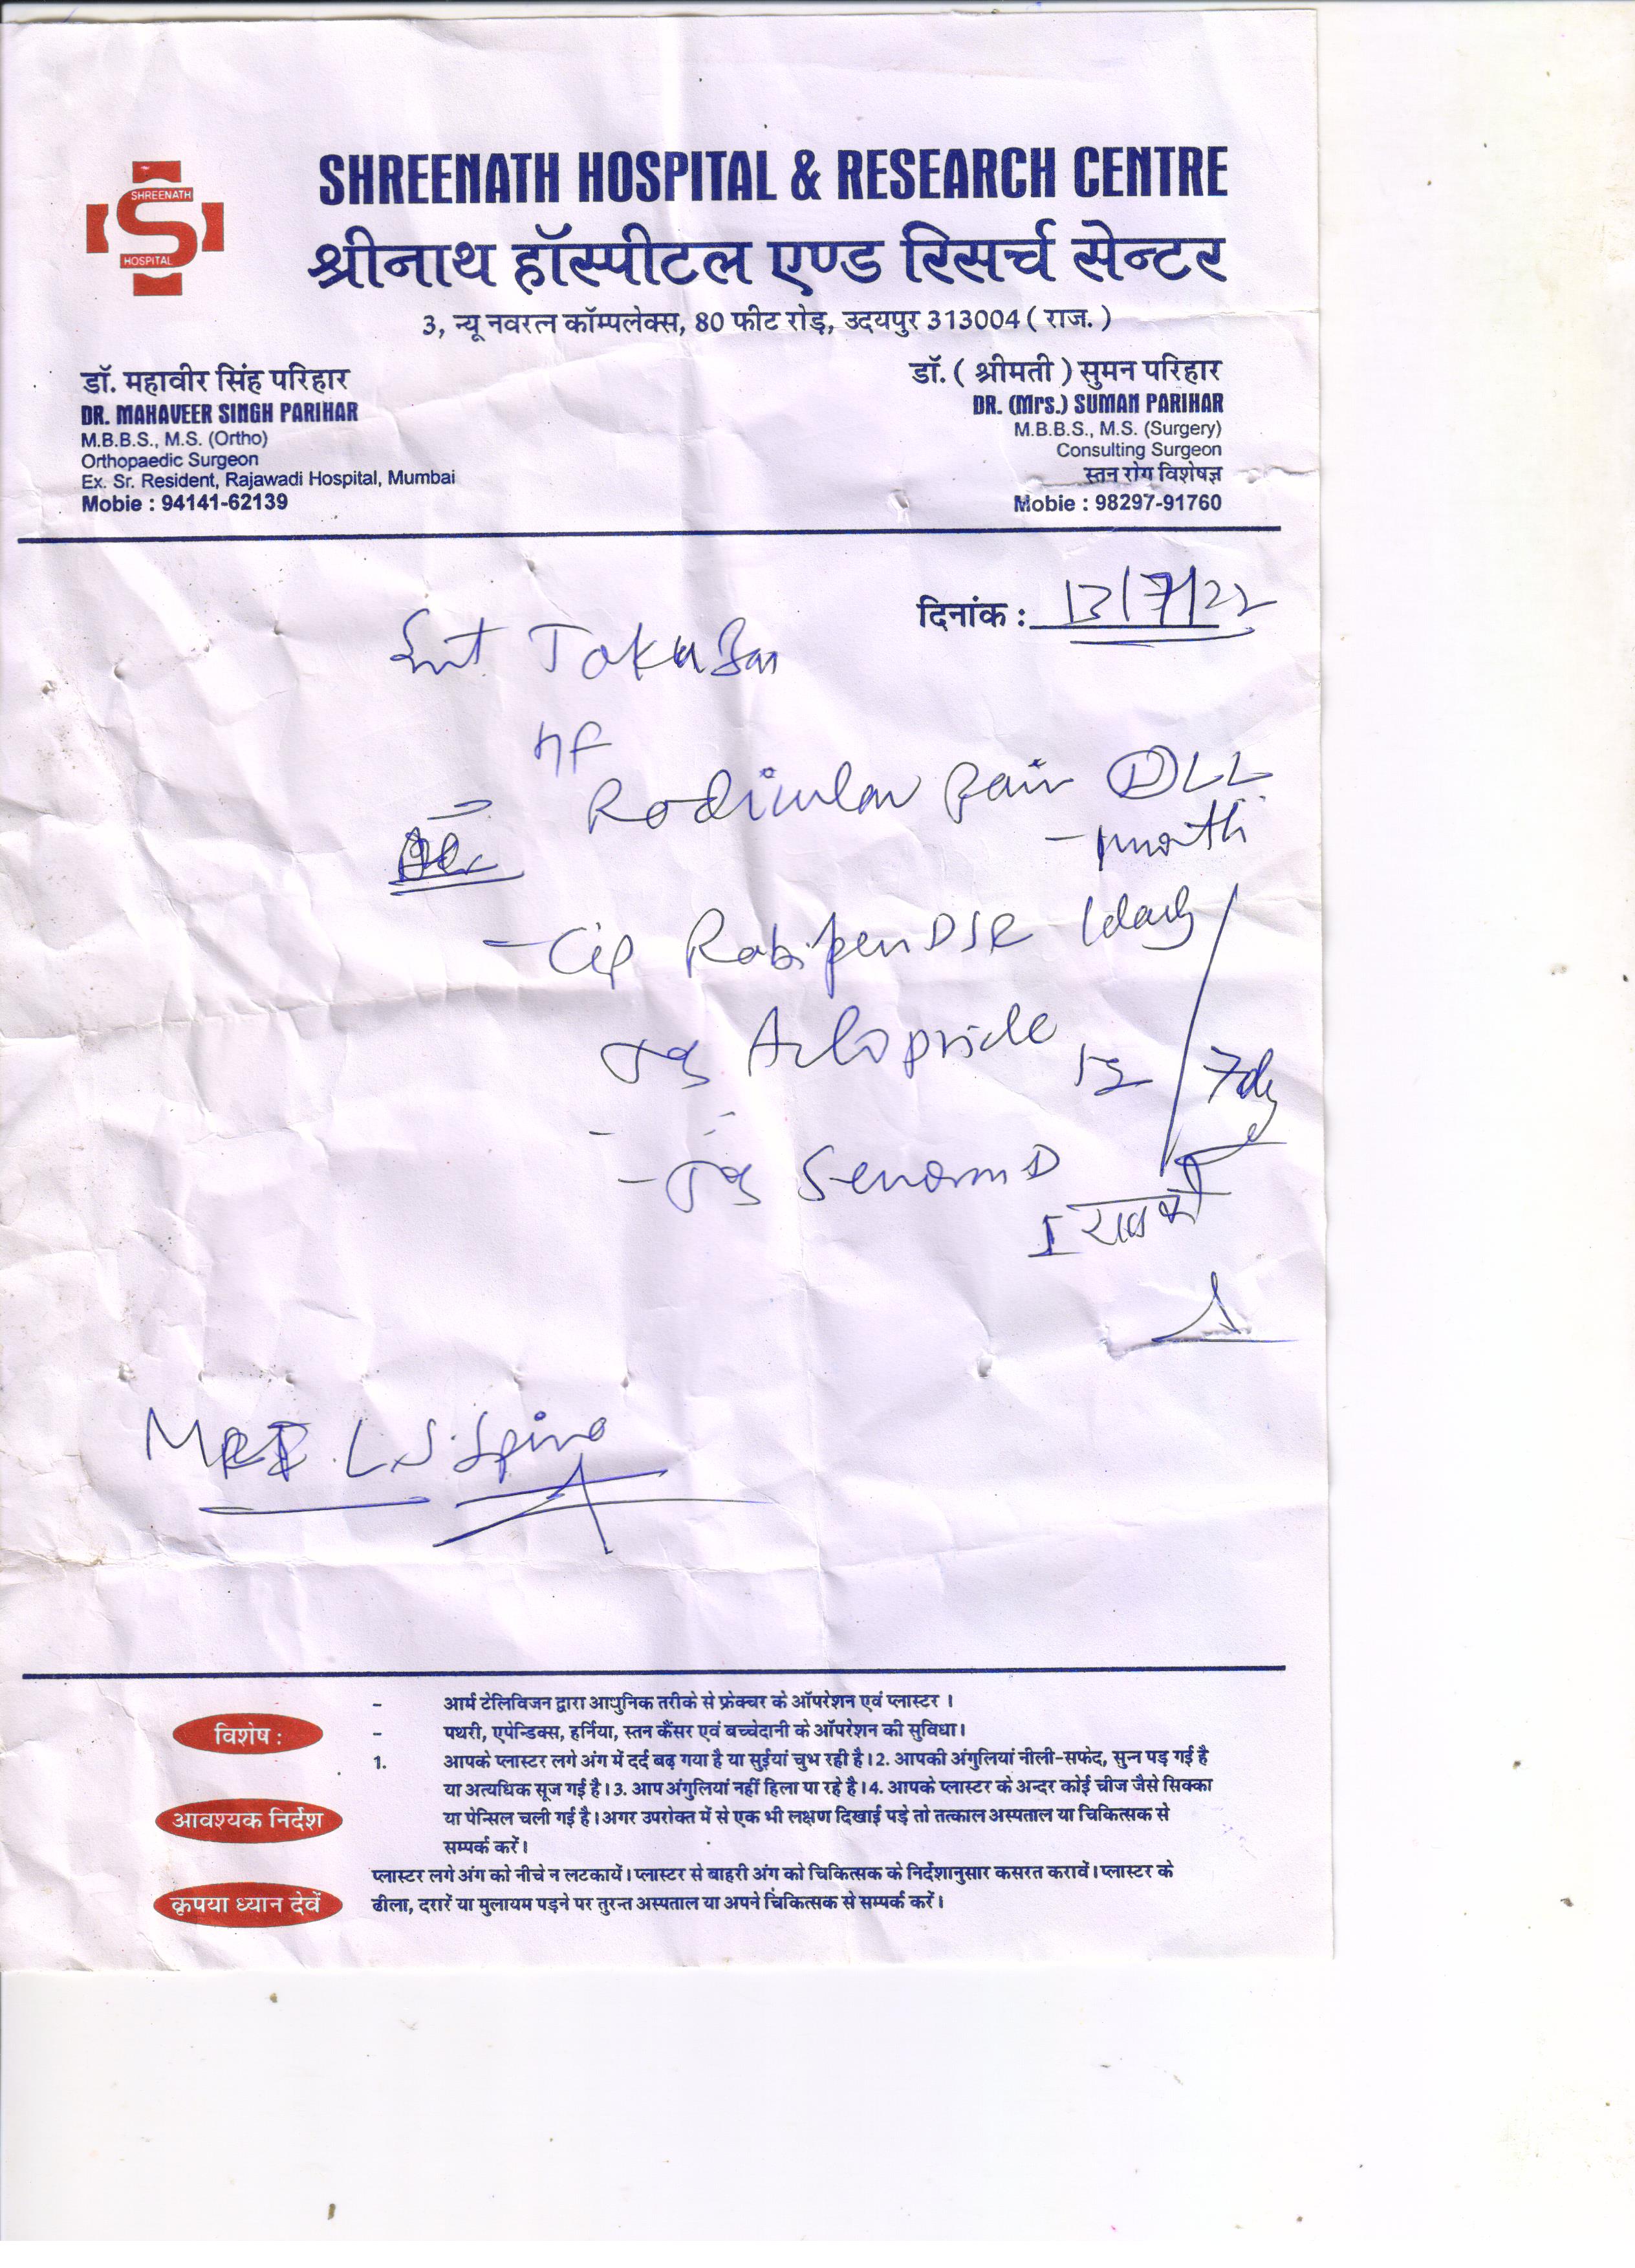 SHREENATH
HOSPITAL
SHREENATH HOSPITAL & RESEARCH CENTRE
श्रीनाथ हॉस्पीटल एण्ड रिसर्च सेन्टर
3, न्यू नवरत्न कॉम्पलेक्स, 80 फीट रोड़, उदयपुर 313004 ( राज. )
डॉ. महावीर सिंह परिहार
DR. MAHAVEER SINGH PARIHAR
M.B.B.S., M.S. (Ortho)
Orthopaedic Surgeon
Ex. Sr. Resident, Rajawadi Hospital, Mumbai
Mobie : 94141-62139
डॉ. ( श्रीमती ) सुमन परिहार
DR. (Mrs.) SUMAN PARIHAR
M.B.B.S., M.S. (Surgery)
Consulting Surgeon
स्तन रोग विशेषज्ञ
Mobie : 98297-91760
दिनांक : 13/7/22
Smt
Radicular pain LL
month
- Cap DSR 1 daily
7 day
-
MRI L.S. Spine
विशेष :
- आर्म टेलिविजन द्वारा आधुनिक तरीके से फ्रेक्चर के ऑपरेशन एवं प्लास्टर ।
- पथरी, एपेन्डिक्स, हर्निया, स्तन कैंसर एवं बच्चेदानी के ऑपरेशन की सुविधा।
आवश्यक निर्देश
1. आपके प्लास्टर लगे अंग में दर्द बढ़ गया है या सुईयां चुभ रही है।2. आपकी अंगुलियां नीली-सफेद, सुन्न पड़ गई है
या अत्यधिक सूज गई है।3. आप अंगुलियां नहीं हिला पा रहे है।4. आपके प्लास्टर के अन्दर कोई चीज जैसे सिक्का
या पेन्सिल चली गई है।अगर उपरोक्त में से एक भी लक्षण दिखाई पड़े तो तत्काल अस्पताल या चिकित्सक से
सम्पर्क करें।
कृपया ध्यान देवें
प्लास्टर लगे अंग को नीचे न लटकायें।प्लास्टर से बाहरी अंग को चिकित्सक के निर्देशानुसार कसरत करावें।प्लास्टर के
ढीला, दरारें या मुलायम पड़ने पर तुरन्त अस्पताल या अपने चिकित्सक से सम्पर्क करें।